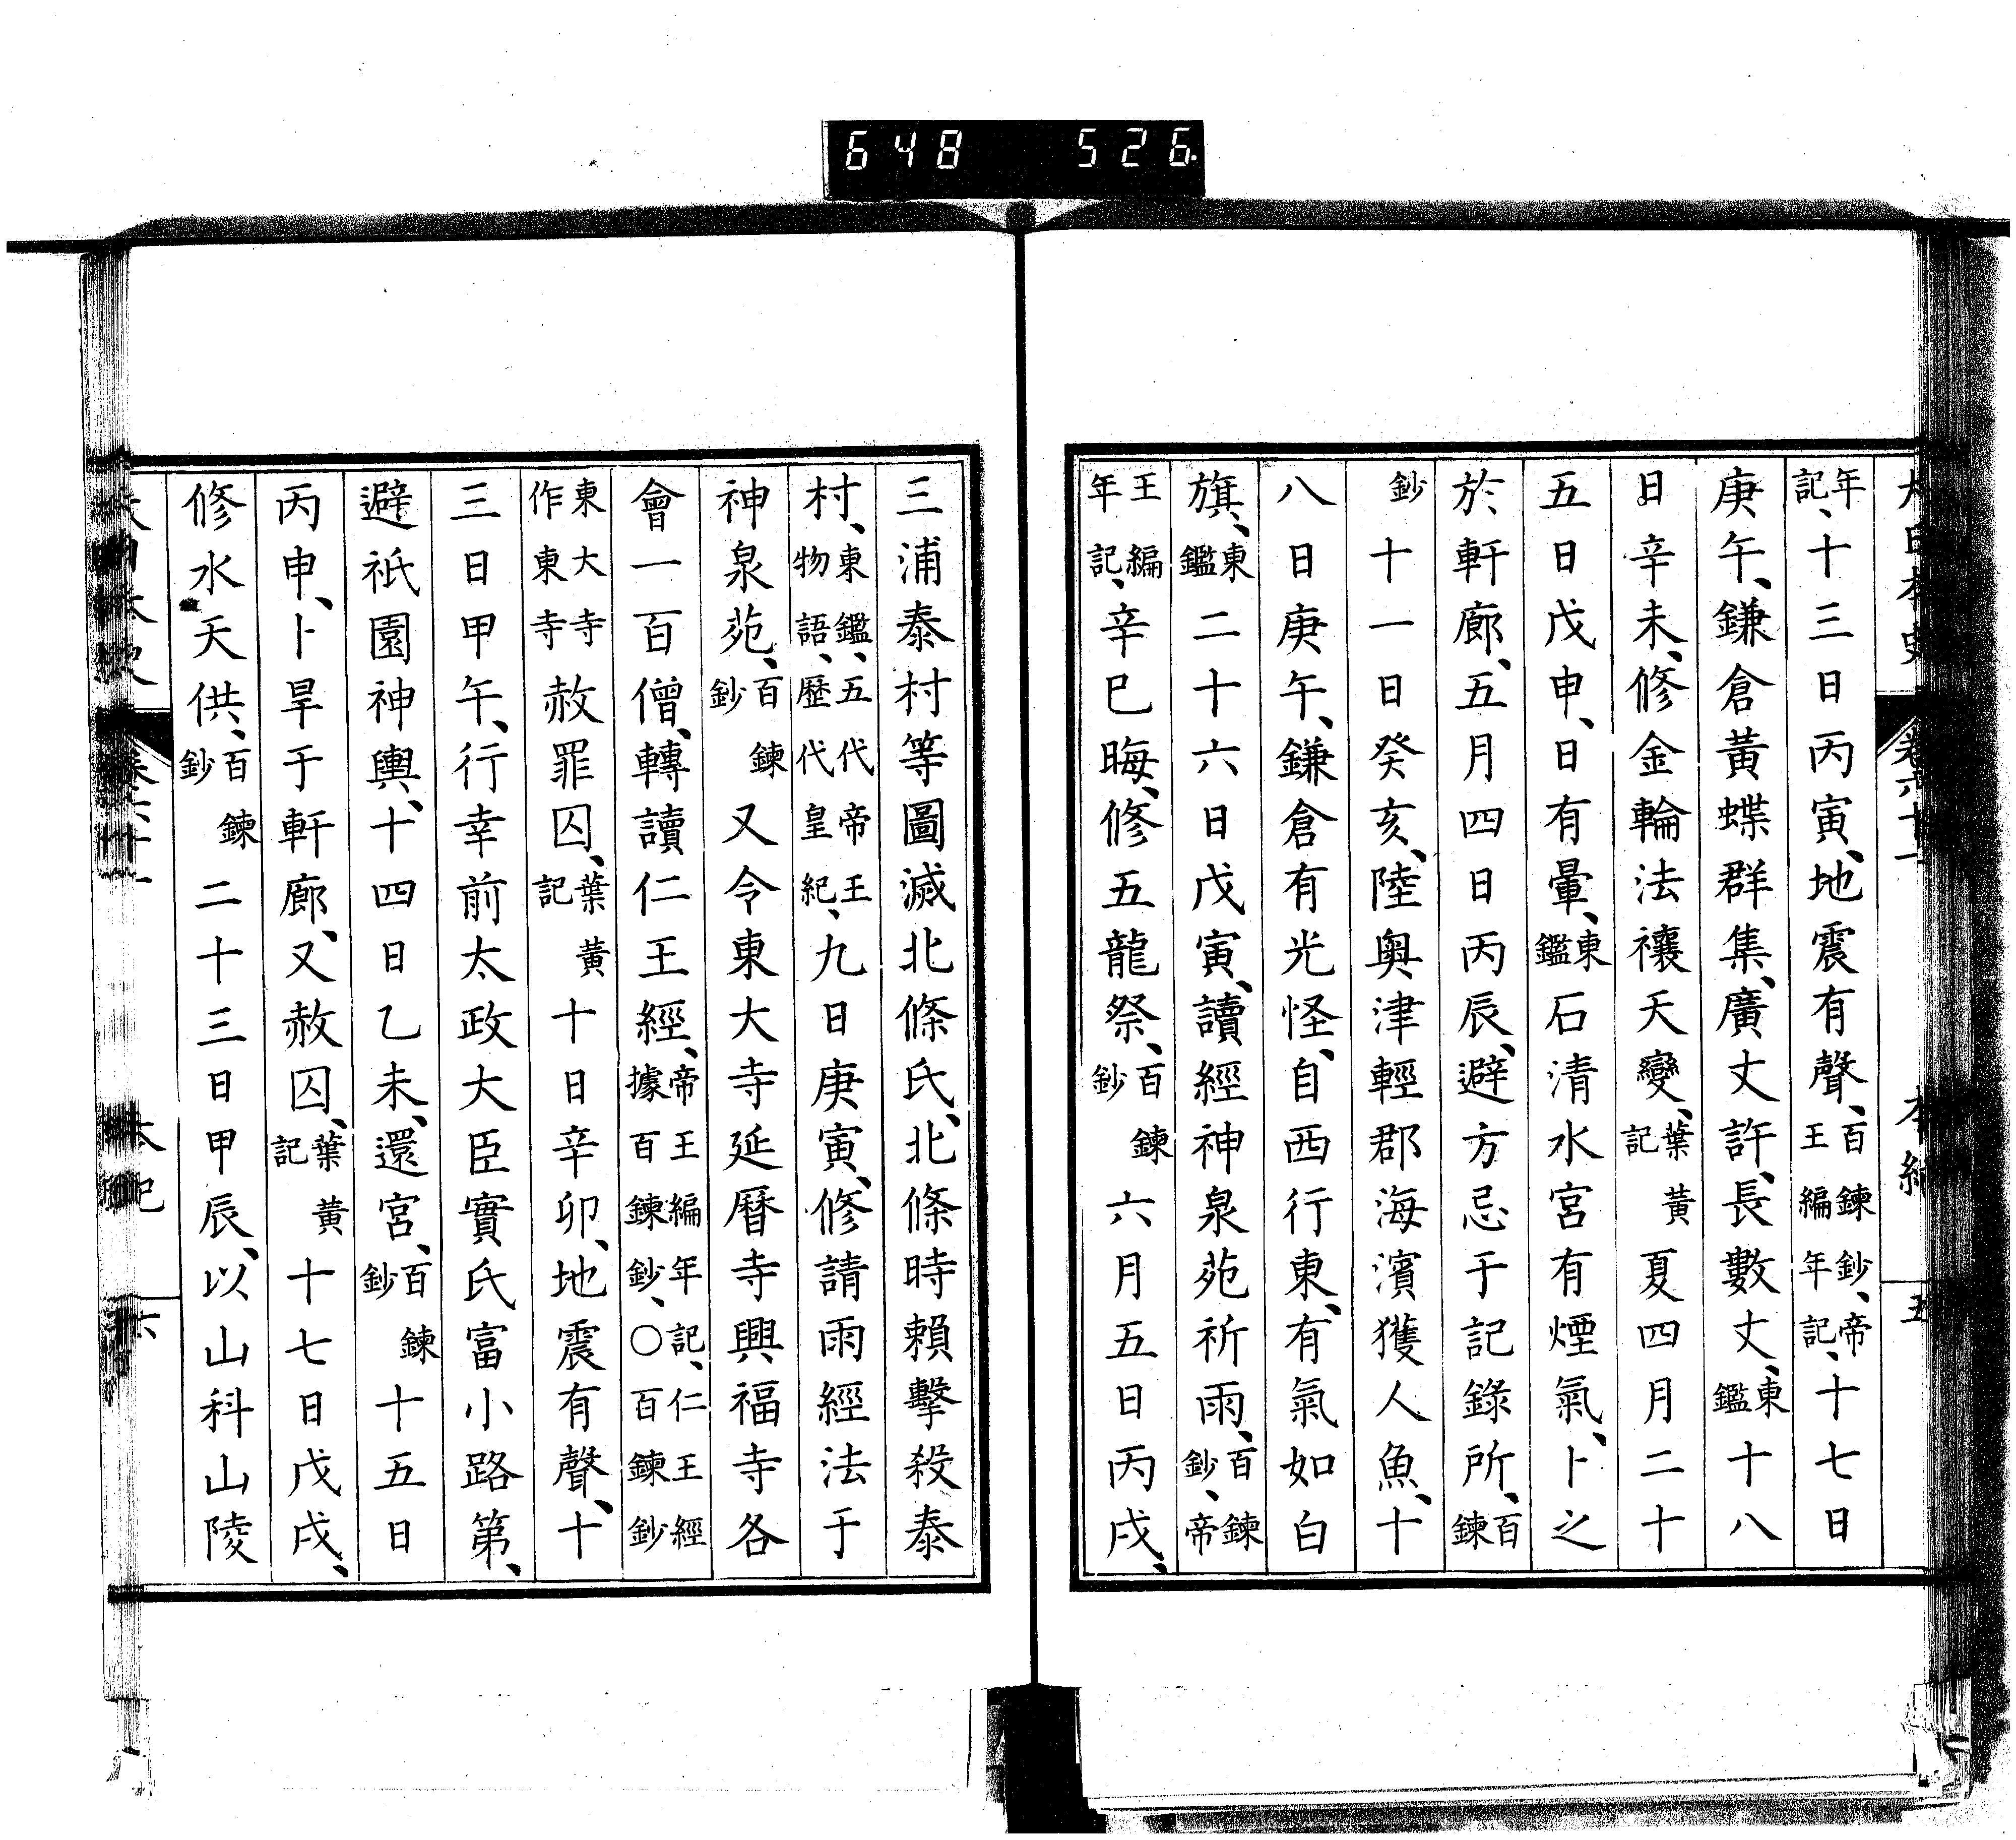 648 526.
大日本史 卷六十一 本紀 五
年記、十三日丙寅、地震有聲、百鍊鈔、帝王編年記、十七日
庚午、鎌倉黃蝶群集、廣丈許、長數丈、東鑑十八
日辛未、修金輪法禳天變、葉黃記夏四月二十
五日戊申、日有暈、東鑑石清水宮有煙氣、卜之
於軒廊、五月四日丙辰、避方忌于記錄所、百鍊
鈔十一日癸亥、陸奧津輕郡海濱獲人魚、十
八日庚午、鎌倉有光怪、自西行東、有氣如白
旗、東鑑二十六日戊寅、讀經神泉苑祈雨、百鍊鈔、帝
王編年記、辛巳晦、修五龍祭、百鍊鈔六月五日丙戌、
三浦泰村等圖滅北條氏、北條時賴擊殺泰
村、東鑑、五代帝王物語、歷代皇紀、九日庚寅、修請雨經法于
神泉苑、百鍊鈔又令東大寺延曆寺興福寺各
會一百僧、轉讀仁王經、帝王編年記、仁王經據百鍊鈔、○百鍊鈔
東大寺作東寺赦罪囚、葉黃記十日辛卯、地震有聲、十
三日甲午、行幸前太政大臣實氏富小路第、
避祇園神輿、十四日乙未、還宮、百鍊鈔十五日
丙申、卜旱于軒廊、又赦囚、葉黃記十七日戊戌、
修水天供、百鍊鈔二十三日甲辰、以山科山陵
本紀 六